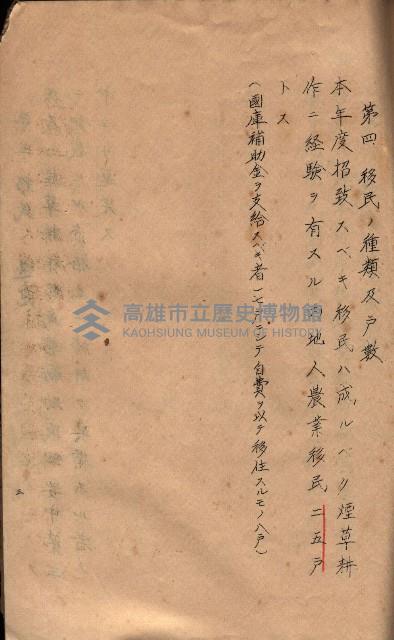 第四、移民ノ種類及戸數
本年度招致スベキ移民ハ成ルベク煙草耕
作ニ経験ヲ有スル内地人農業移民二五戸
トス
(國庫補助金ヲ支給スベキ者一七戸ニシテ自費ヲ以テ移住スルモノ八戸)
三
高雄市立歷史博物館
KAOHSIUNG MUSEUM OF HISTORY